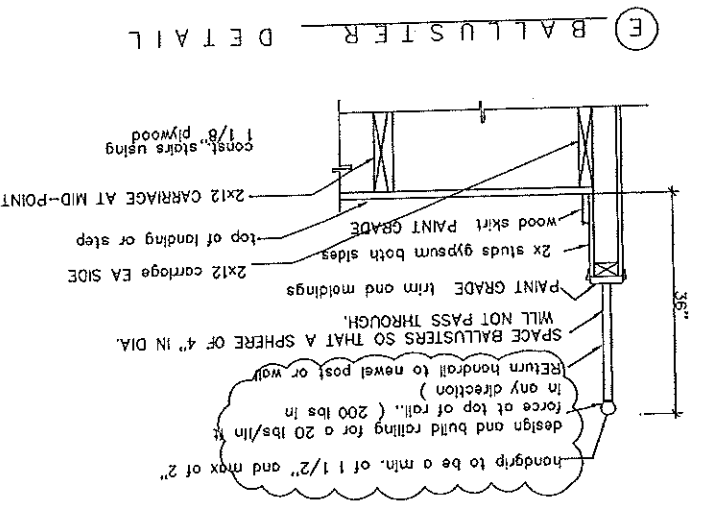 handgrip to be a min. of 1 1/2" and max of 2"
design and build railing for a 20 lbs/lin ft
force at top of rail.. ( 200 lbs in
in any direction )
REturn handrail to newel post or wall
SPACE BALLUSTERS SO THAT A SPHERE OF 4" IN DIA.
WILL NOT PASS THROUGH.
36"
PAINT GRADE trim and moldings
2x studs gypsum both sides
wood skirt PAINT GRADE
2x12 carriage EA SIDE
top of landing or step
2x12 CARRIAGE AT MID-POINT
const. stairs using
1 1/8" plywood
E BALLUSTER DETAIL